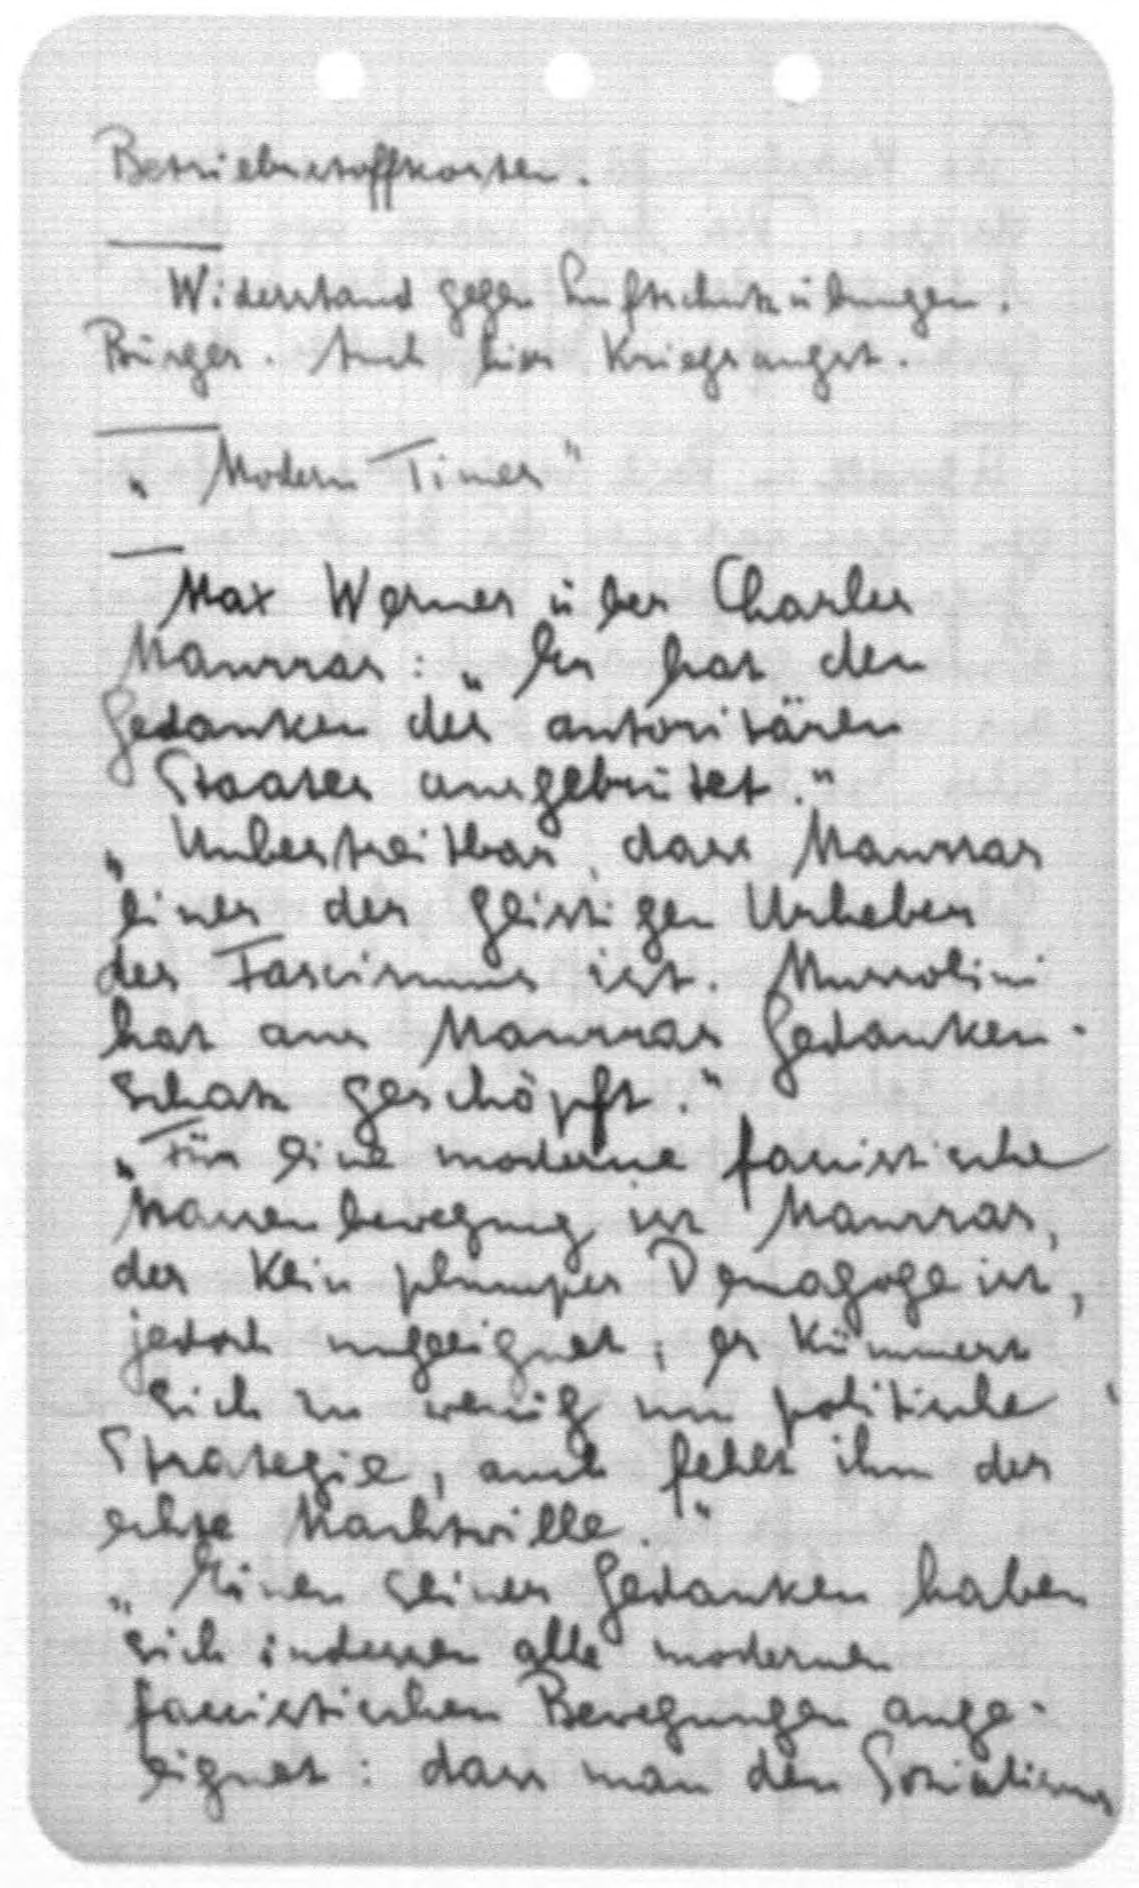 Betriebsstoffkosten.
Widerstand gegen Luftschutzübungen.
Bürger. Auch hier Kriegsangst.
„Modern Times"
Max Werner über Charles
Maurras: „Er hat den
Gedanken des autoritären
Staates ausgebrütet."
„Unbestreitbar, dass Maurras
einer der geistigen Urheber
des Fascismus ist. Mussolini
hat aus Maurras Gedanken-
schatz geschöpft."
„Für eine moderne fascistische
Massenbewegung ist Maurras,
der kein plumper Demagoge ist,
jedoch ungeeignet; er kümmert
sich zu wenig um politische
Strategie, auch fehlt ihm der
echte Machtwille."
„Einen seiner Gedanken haben
sich indessen alle modernen
fascistischen Bewegungen ange-
eignet: dass man den Sozialismus